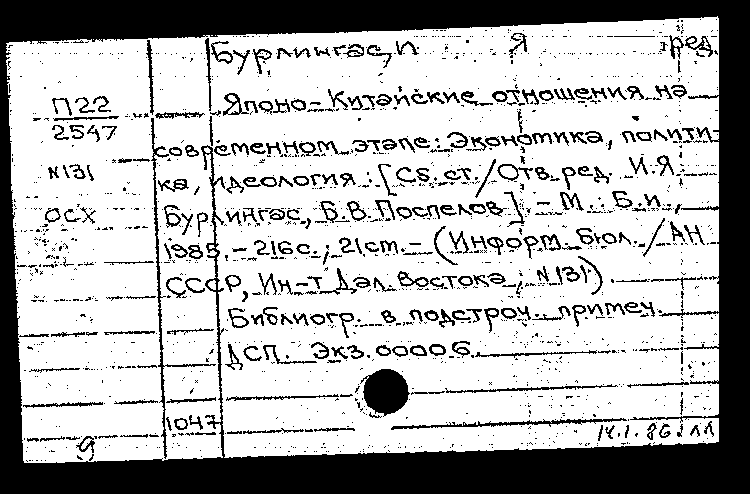 Бурлингас, И Я ред.
П22
2547
N131
ОСХ
Японо-Китайские отношения на
современном этапе: Экономика, полити-
ка, идеология: [Сб. ст./Отв. ред. И.Я.
Бурлингас, Б.В. Поспелов]. - М.: Б.и.,
1985. - 216с.; 21см. - (Информ. бюл./АН
СССР, Ин-т Дал. Востока; N131).
Библиогр. в подстроч. примеч.
ДСП. Экз.00006.
1047
9
14.1.86.